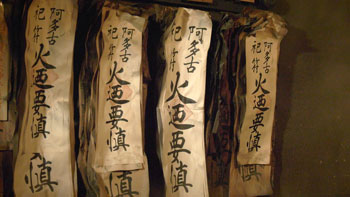 阿多古
祀符
火迺要慎
阿多古
祀符
火迺要慎
慎
阿多古
祀符
火迺要慎
慎
阿多古
祀符
火迺要慎
慎